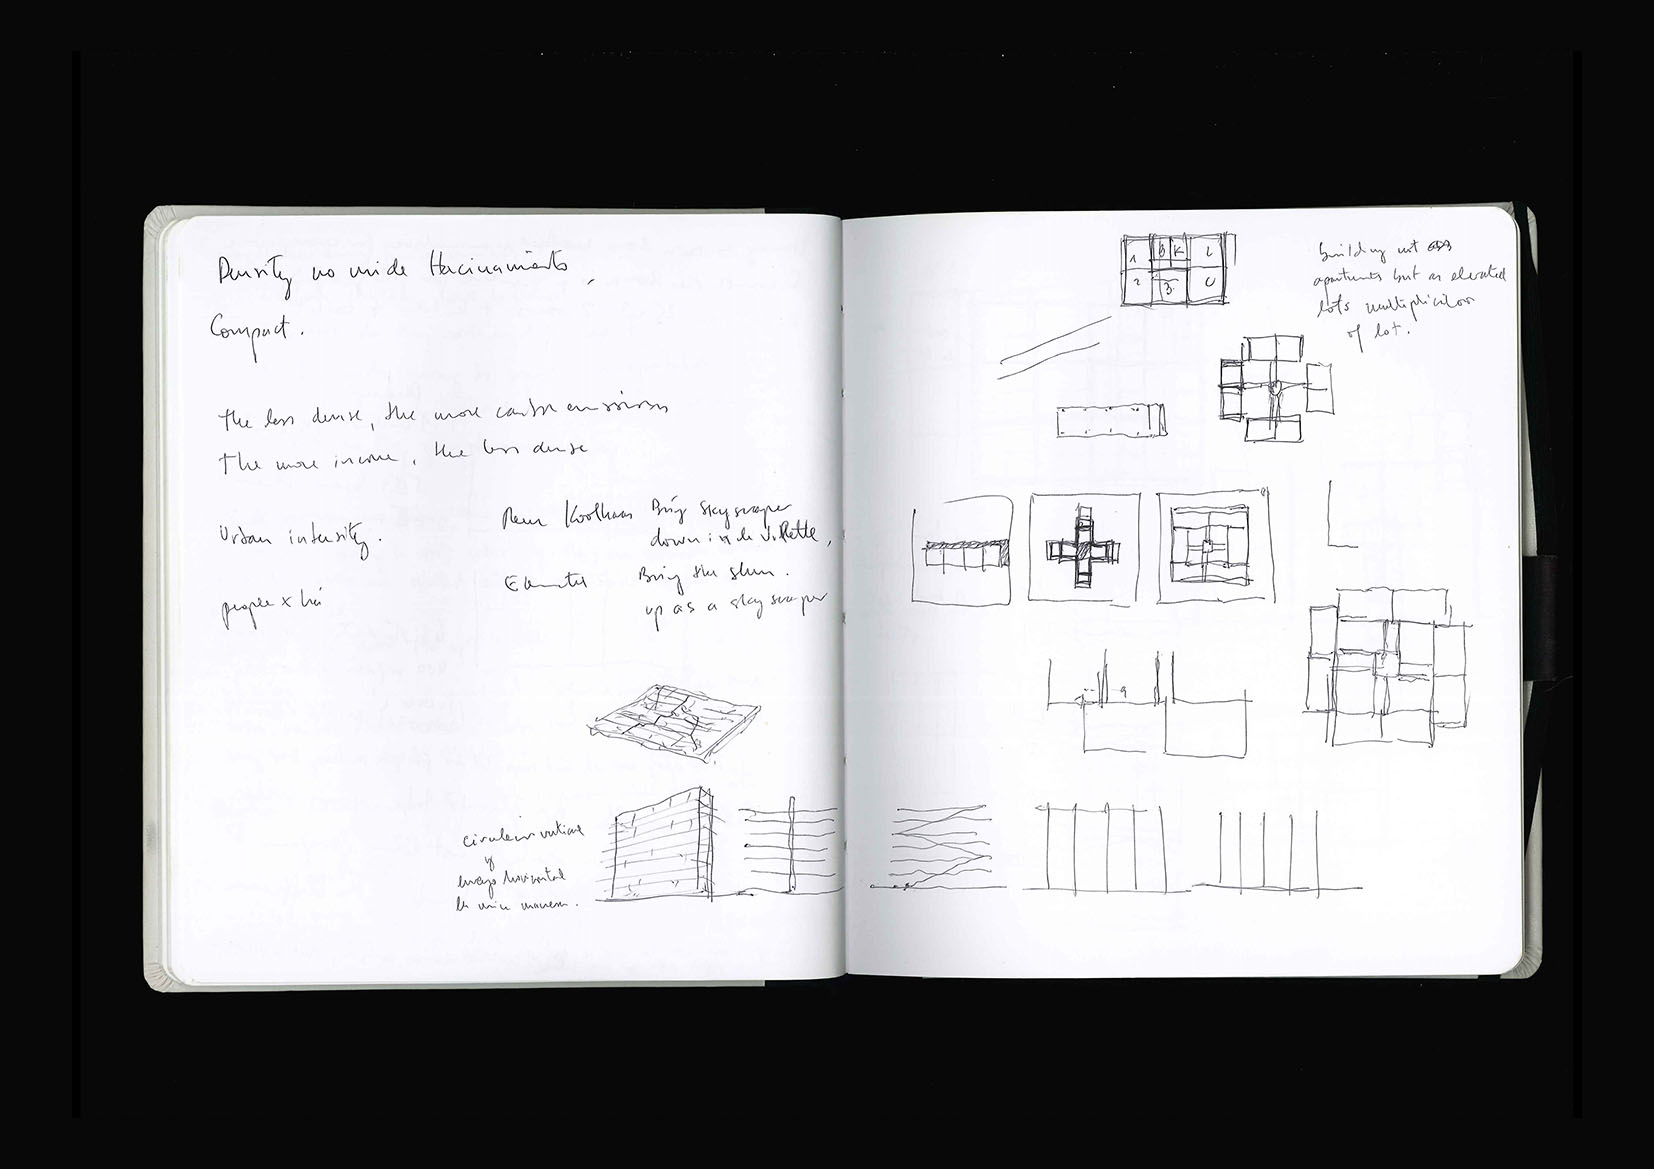 Density no mide Hacinamiento,
Compact.
the less dense, the more carbon emissions
the more income, the less dense
Urban intensity.
people x há
Rem Koolhaas Bring skyscraper
down in la Villette,
Elemental Bring the slum.
up as a skyscraper
horizontal
1 B K L
2 B.
building not as
apartments but as elevated
lots multiplication
of lot.